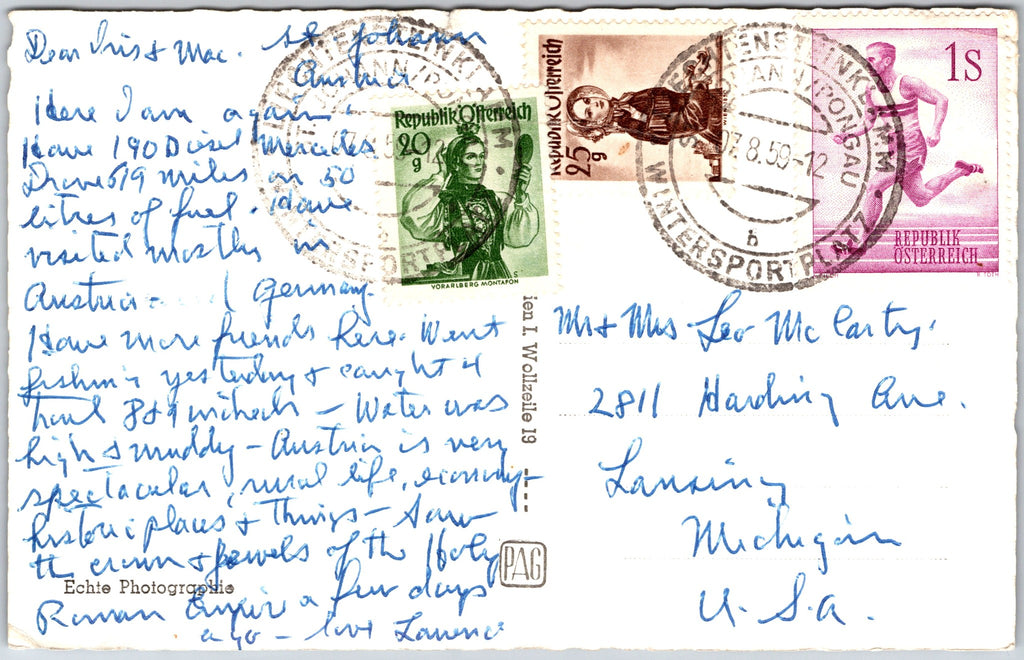 Dear Iris & Mac.
St Johann
Austria
Here I am again.
Have 190 Diesel Mercedes
Drove 619 miles on 50
litres of fuel. Have
visited mostly in
Austria and Germany.
Have more friends here. Went
fishing yesterday & caught 4
trout 8 & 9 inches - Water was
high & muddy - Austria is very
spectacular, rural life, economy-
historic places & things - Saw
the crown & jewels of the Holy
Roman Empire a few days
ago - love Lawrence
Echte Photographie
ien I. Wollzeile 19
PAG
Republik Österreich
20 g
VORARLBERG MONTAFON
Republik Österreich
25 g
1S
REPUBLIK
ÖSTERREICH
WINTERSPORTPLATZ
07.8.59-12
b
Mr & Mrs Leo Mc Carty.
2811 Harding Ave.
Lansing
Michigan
U.S.A.